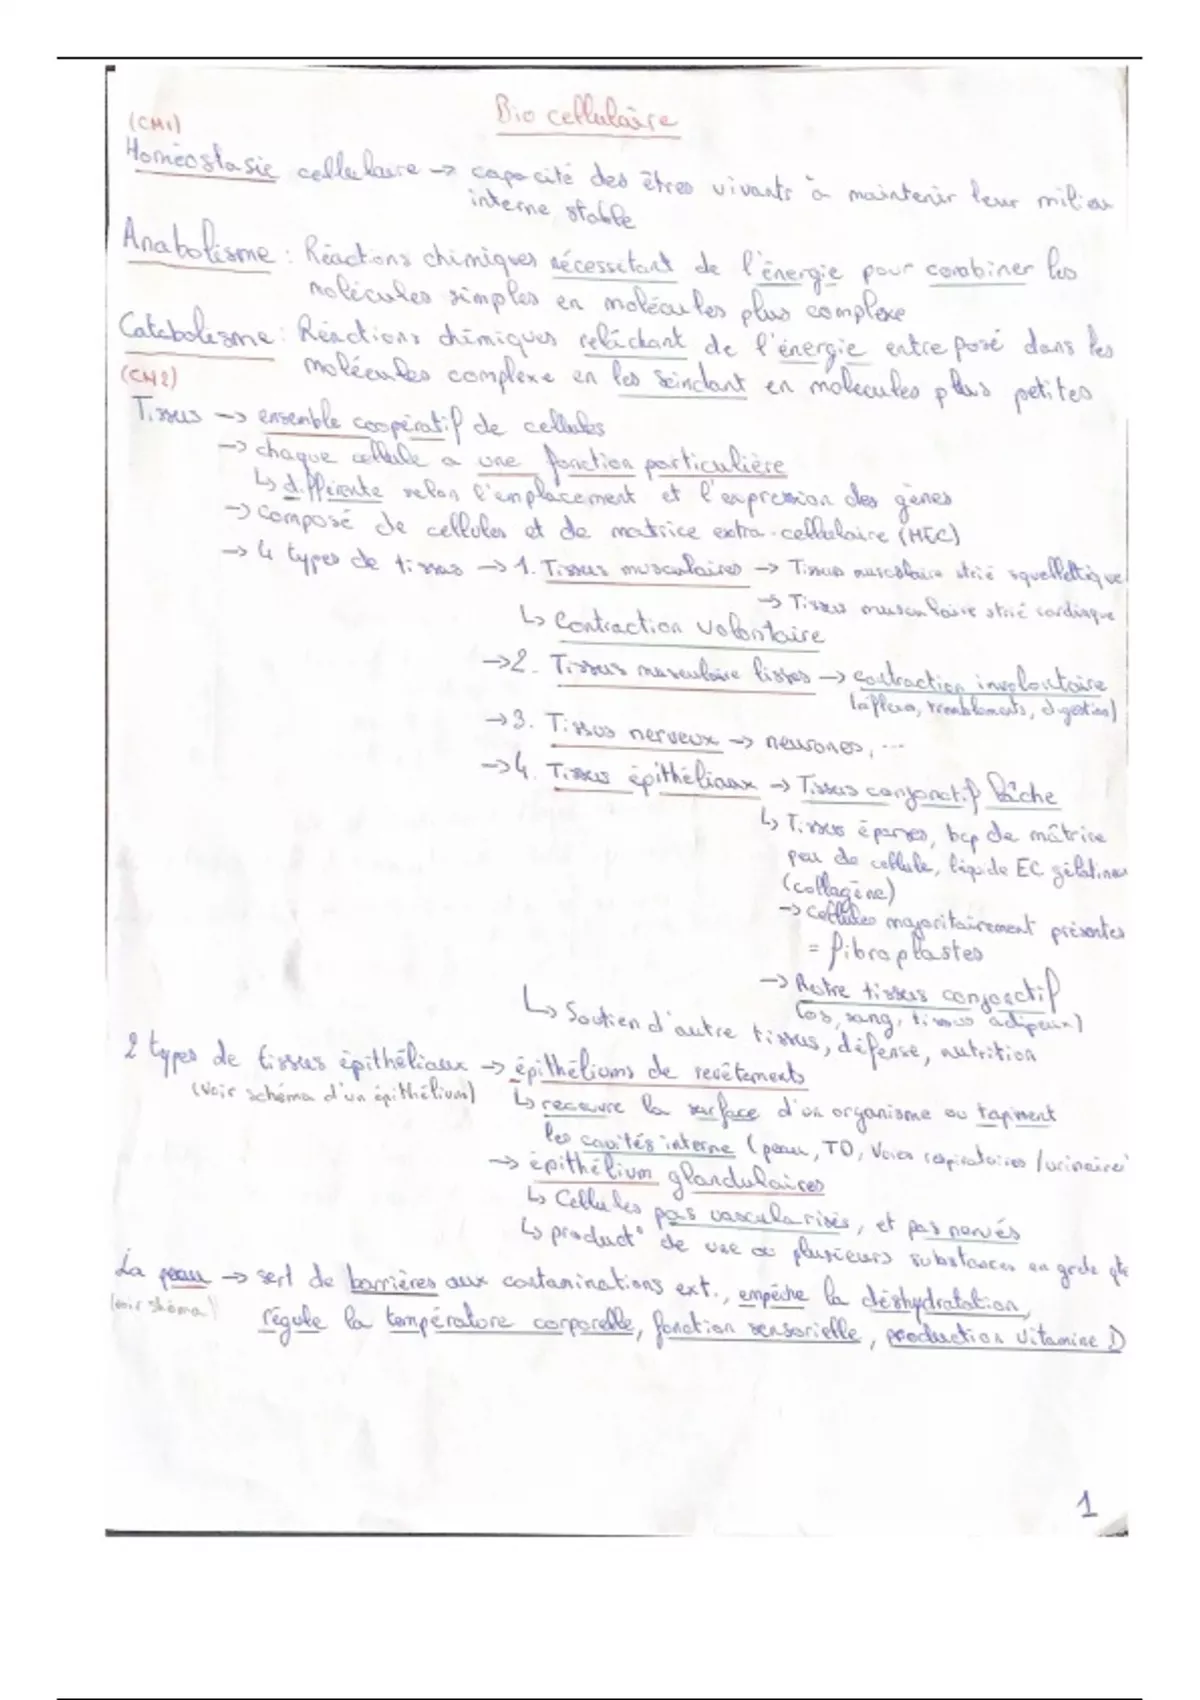 Bio cellulaire
(CM1)
Homéostasie cellulaire → capacité des êtres vivants à maintenir leur milieu
interne stable
Anabolisme : Réactions chimiques nécessitant de l'énergie pour combiner les
molécules simples en molécules plus complexe
Catabolisme : Réactions chimiques relâchant de l'énergie entreposé dans les
molécules complexe en les scindant en molécules plus petites
(CM2)
Tissus → ensemble coopératif de cellules
→ chaque cellule a une fonction particulière
↳ différente selon l'emplacement et l'expression des gènes
→ composé de cellules et de matrice extra-cellulaire (MEC)
→ 4 types de tissus → 1. Tissus musculaires → Tissus musculaire strié squellettique
→ Tissus musculaire strié cardiaque
↳ Contraction volontaire
→ 2. Tissus musculaire lisses → contraction involontaire
(réflexes, tremblements, digestion)
→ 3. Tissus nerveux → neurones, ...
→ 4. Tissus épithéliaux → Tissus conjonctif lâche
↳ Tissus éparses, bcp de mâtrice
peu de cellule, liquide EC gélatineux
(collagène)
→ Cellules majoritairement présentes
= fibroplastes
→ Autre tissus conjonctif
(os, sang, tissus adipeux)
↳ Soutien d'autre tissus, défense, nutrition
2 types de tissus épithéliaux → épithéliums de revêtements
(voir schéma d'un épithélium)
↳ recouvre la surface d'un organisme ou tapissent
les cavités interne (peau, TD, Voies respiratoires / urinaire
→ épithélium glandulaires
↳ Cellules pas vascularisés, et pas nervés
↳ product° de une ou plusieurs substances en grde qte
La peau → sert de barrières aux contaminations ext., empêche la déshydratation,
(voir schéma)
régule la température corporelle, fonction sensorielle, production vitamine D
1